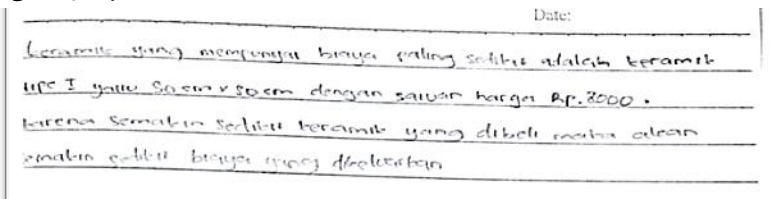 Date:
keramik yang mempunyai biaya paling sedikit adalah keramik
tipe I yaitu 50 cm x 50 cm dengan satuan harga Rp. 8000.
karena semakin sedikit keramik yang dibeli maka akan
semakin sedikit biaya yang dikeluarkan